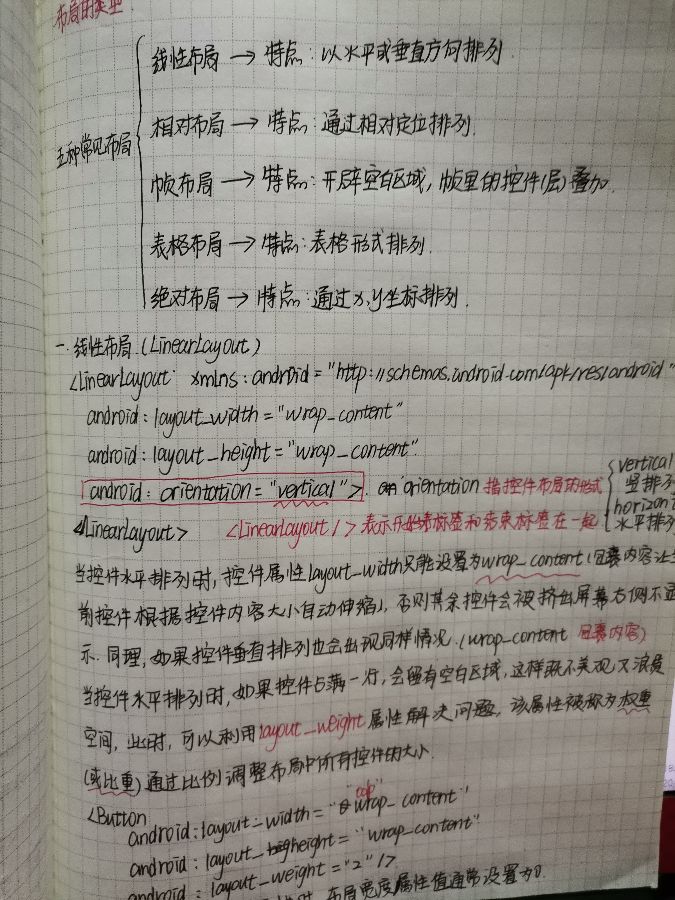 布局的类型
五种常见布局
线性布局 → 特点:以水平或垂直方向排列.
相对布局 → 特点:通过相对定位排列.
帧布局 → 特点:开辟空白区域,帧里的控件(层)叠加.
表格布局 → 特点:表格形式排列.
绝对布局 → 特点:通过x,y坐标排列.
一.线性布局.(LinearLayout)
<LinearLayout xmlns:android="http://schemas.android.com/apk/res/android"
android:layout_width="wrap_content"
android:layout_height="wrap_content"
android:orientation="vertical">. orientation 指控件布局的形式 { vertical 竖排列 horizont 水平排列
<LinearLayout> <LinearLayout/>表示开始标签和结束标签在一起
当控件水平排列时,控件属性layout_width只能设置为wrap_content(包裹内容让当
前控件根据控件内容大小自动伸缩),否则其余控件会被挤出屏幕右侧不显
示.同理,如果控件垂直排列也会出现同样情况.(wrap_content 包裹内容)
当控件水平排列时,如果控件占满一行,会留有空白区域,这样既不美观又浪费
空间,此时,可以利用layout_weight属性解决问题,该属性被称为权重
(或比重)通过比例调整布局中所有控件的大小.
<Button
android:layout_width="0 wrap_content" "0dp"
android:layout_height="wrap_content"
android:layout_weight="2"/>
布局宽度属性值通常设置为0.